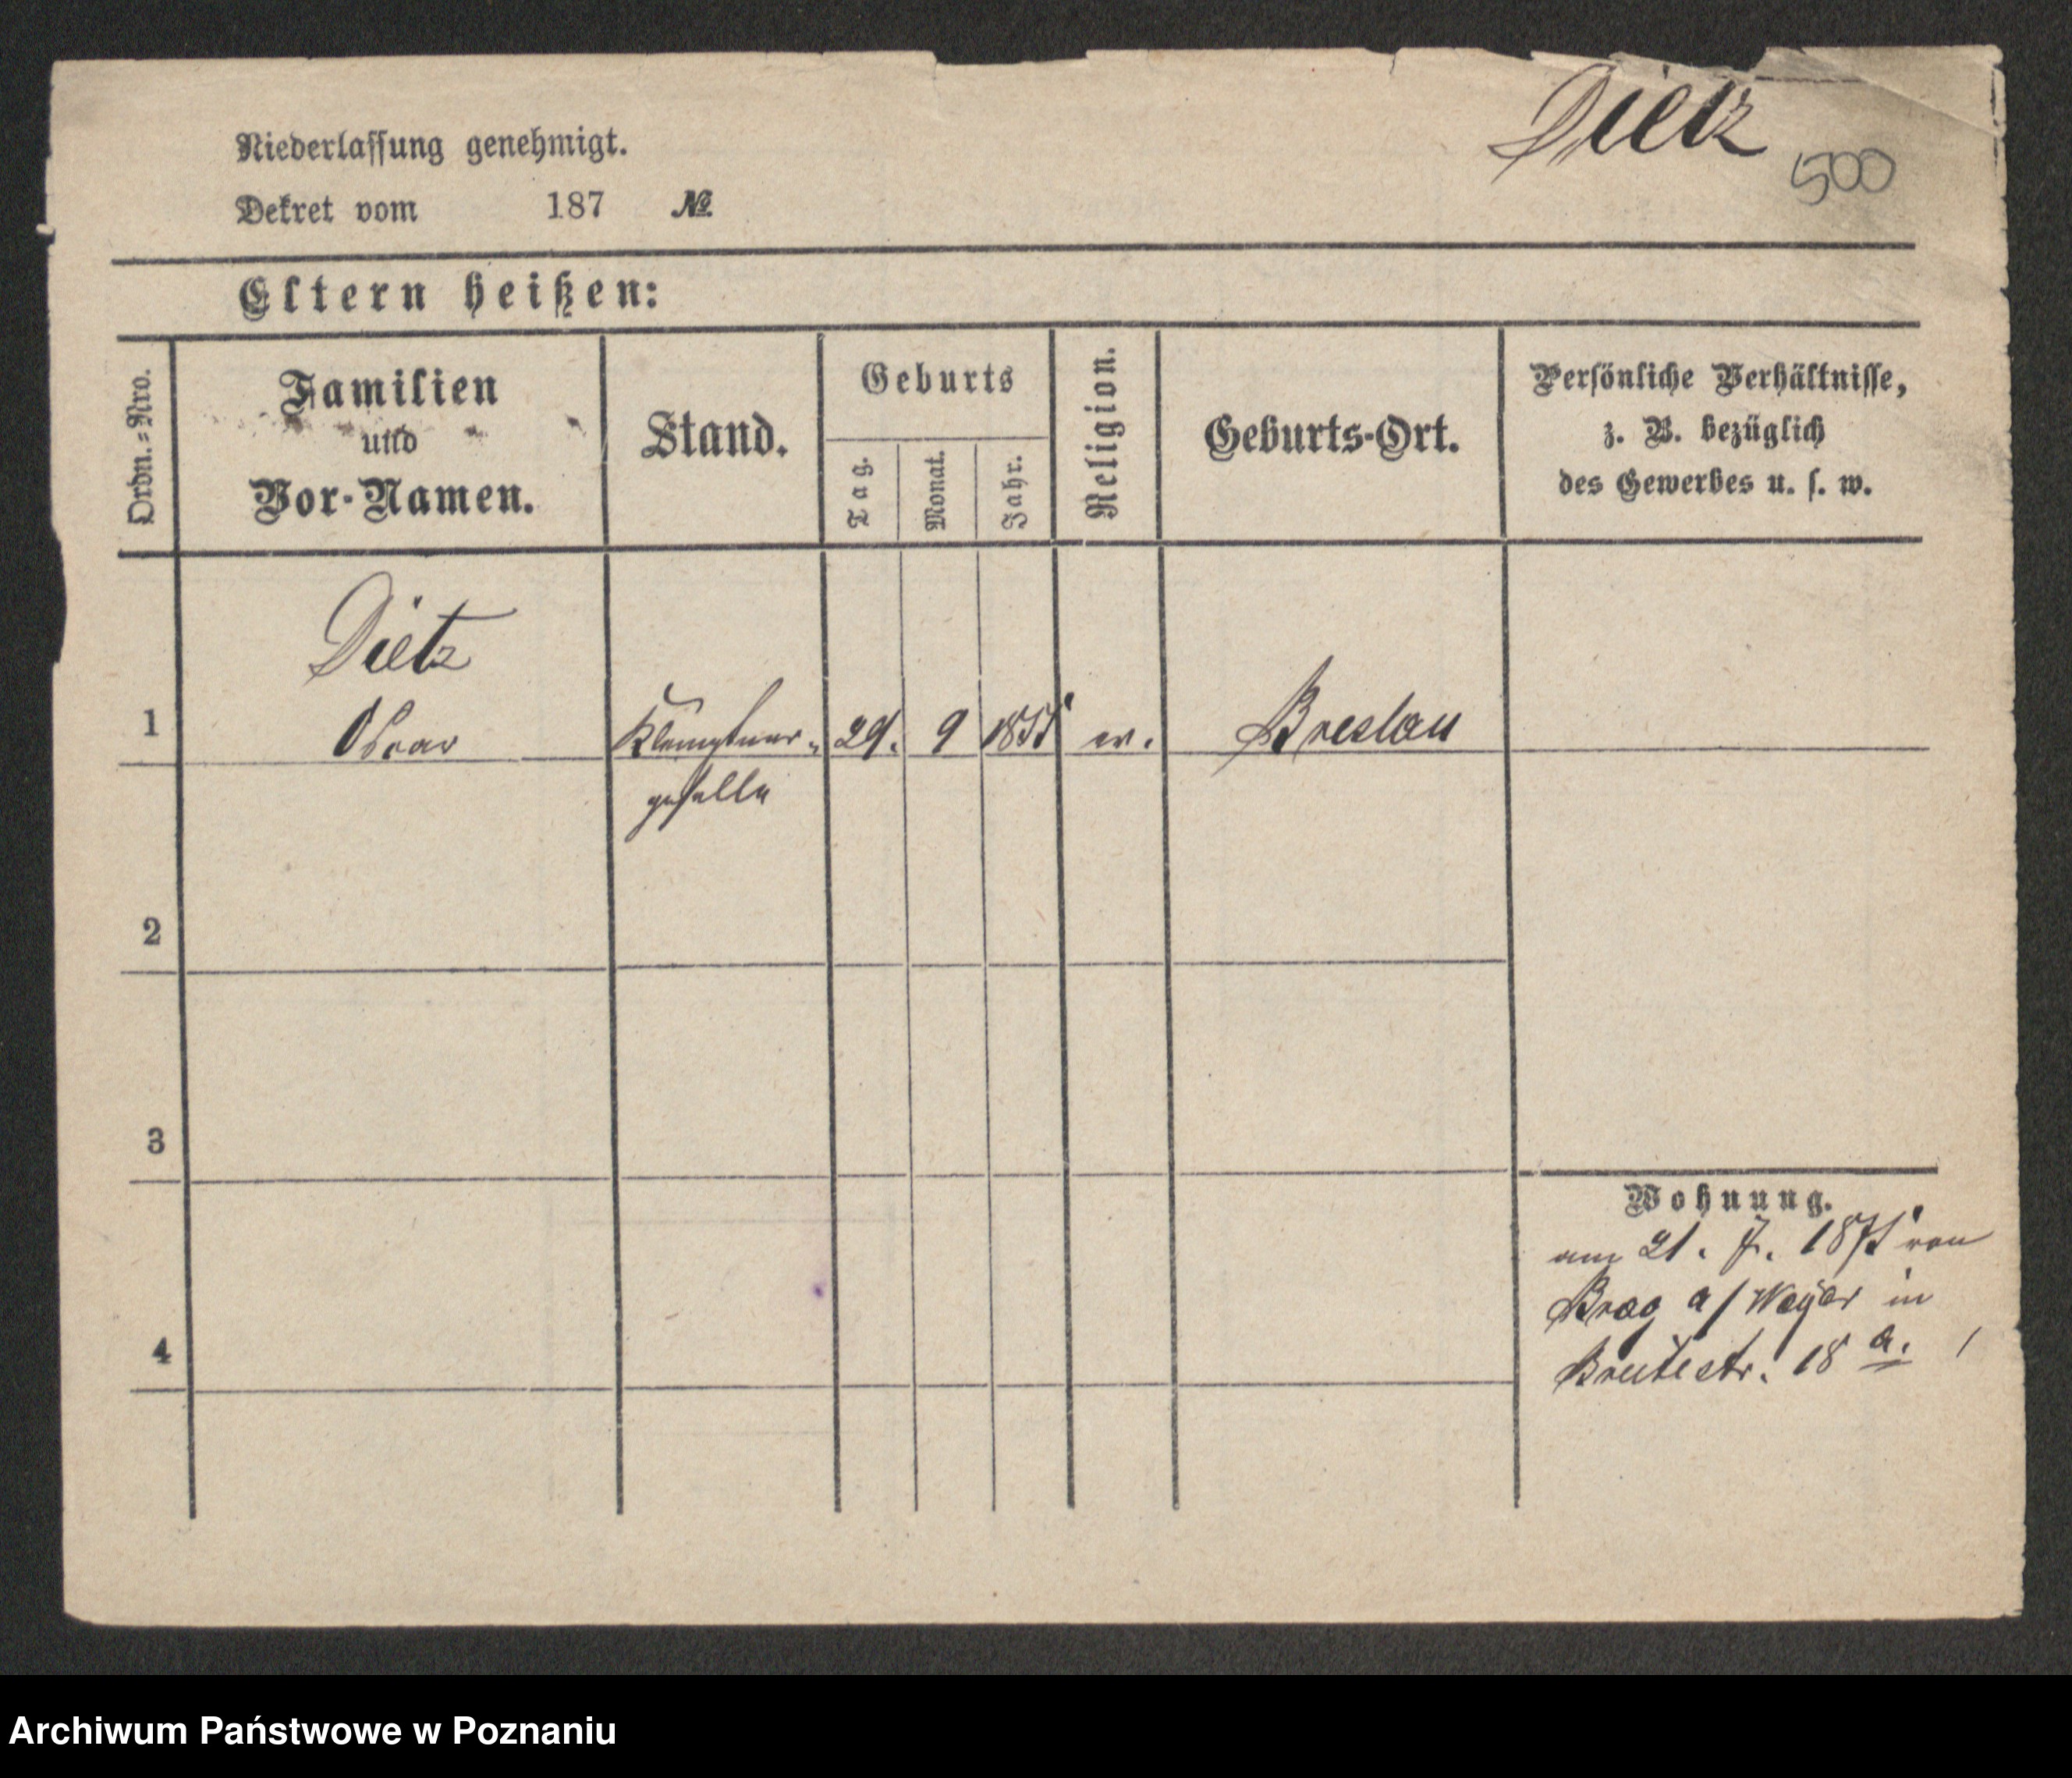 Dietz
500
Niederlassung genehmigt.
Dekret vom 187 №
Eltern heißen:
Ordn.=Nro.
Familien
und
Vor-Namen.
Stand.
Geburts
Tag.
Monat.
Jahr.
Religion.
Geburts-Ort.
Persönliche Verhältnisse,
z. B. bezüglich
des Gewerbes u. s. w.
Dietz
1 Klempner- 29. 9 1855 ev. Breslau
geselle
2
3
4
Wohnung.
am 21. 7. 1875 von
in
Breitestr. 18 a.
Archiwum Państwowe w Poznaniu